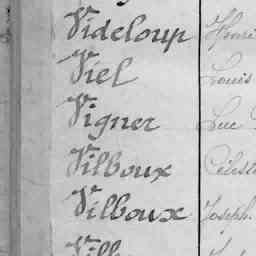 Videloup Henri
Viel Louis
Vigner Luc
Vilboux Célest
Vilboux Joseph.